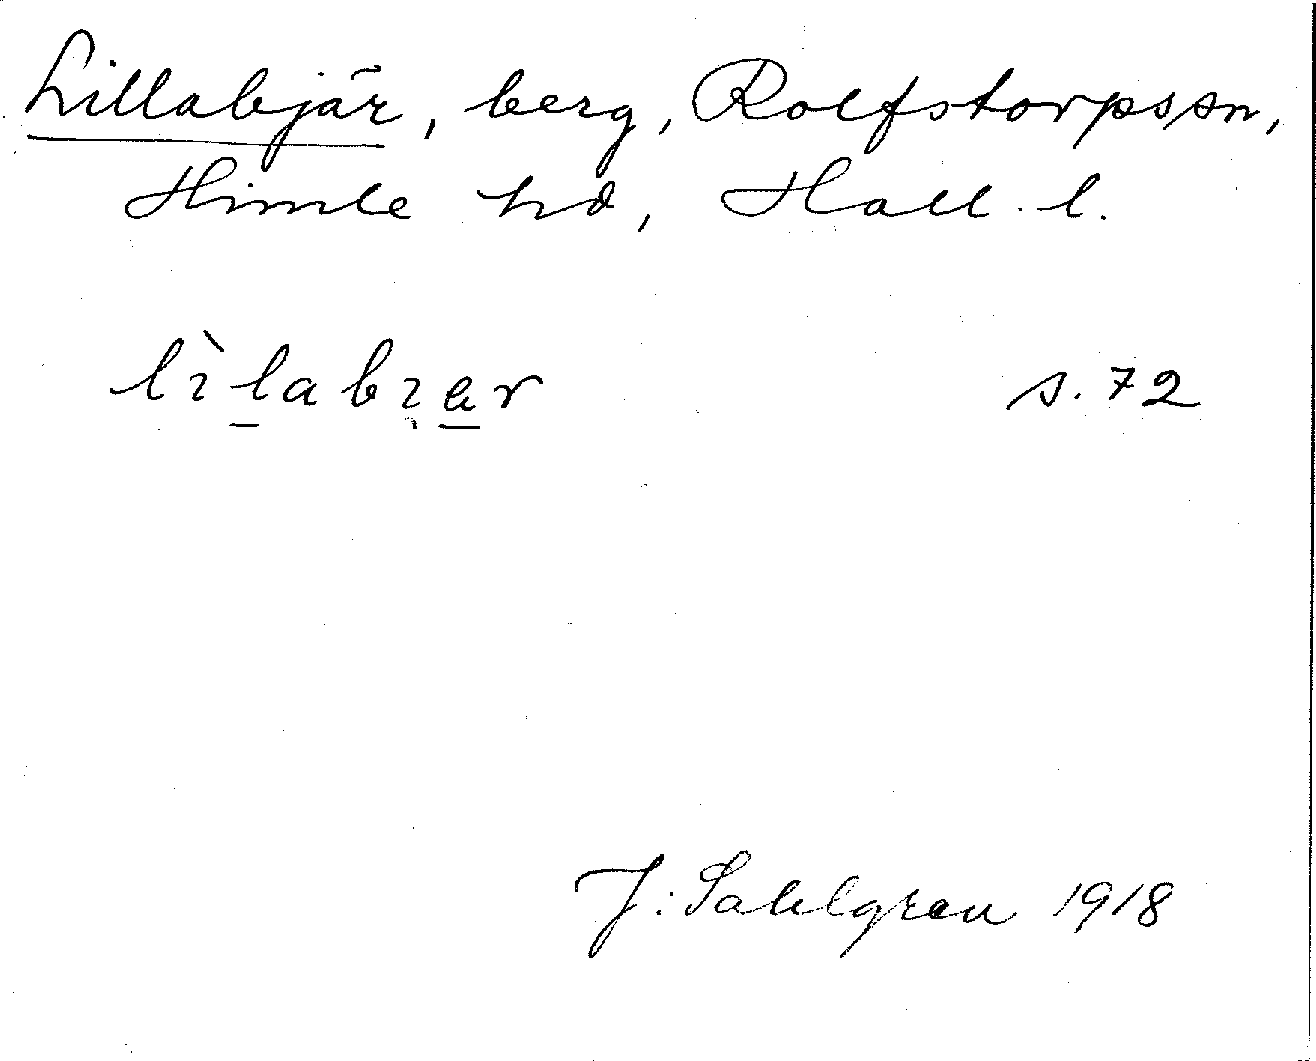 Lillabjär, berg, Rolfstorps sn,
Himle hd, Hall. l.
lìlabıar s. 72
J. Sahlgren 1918